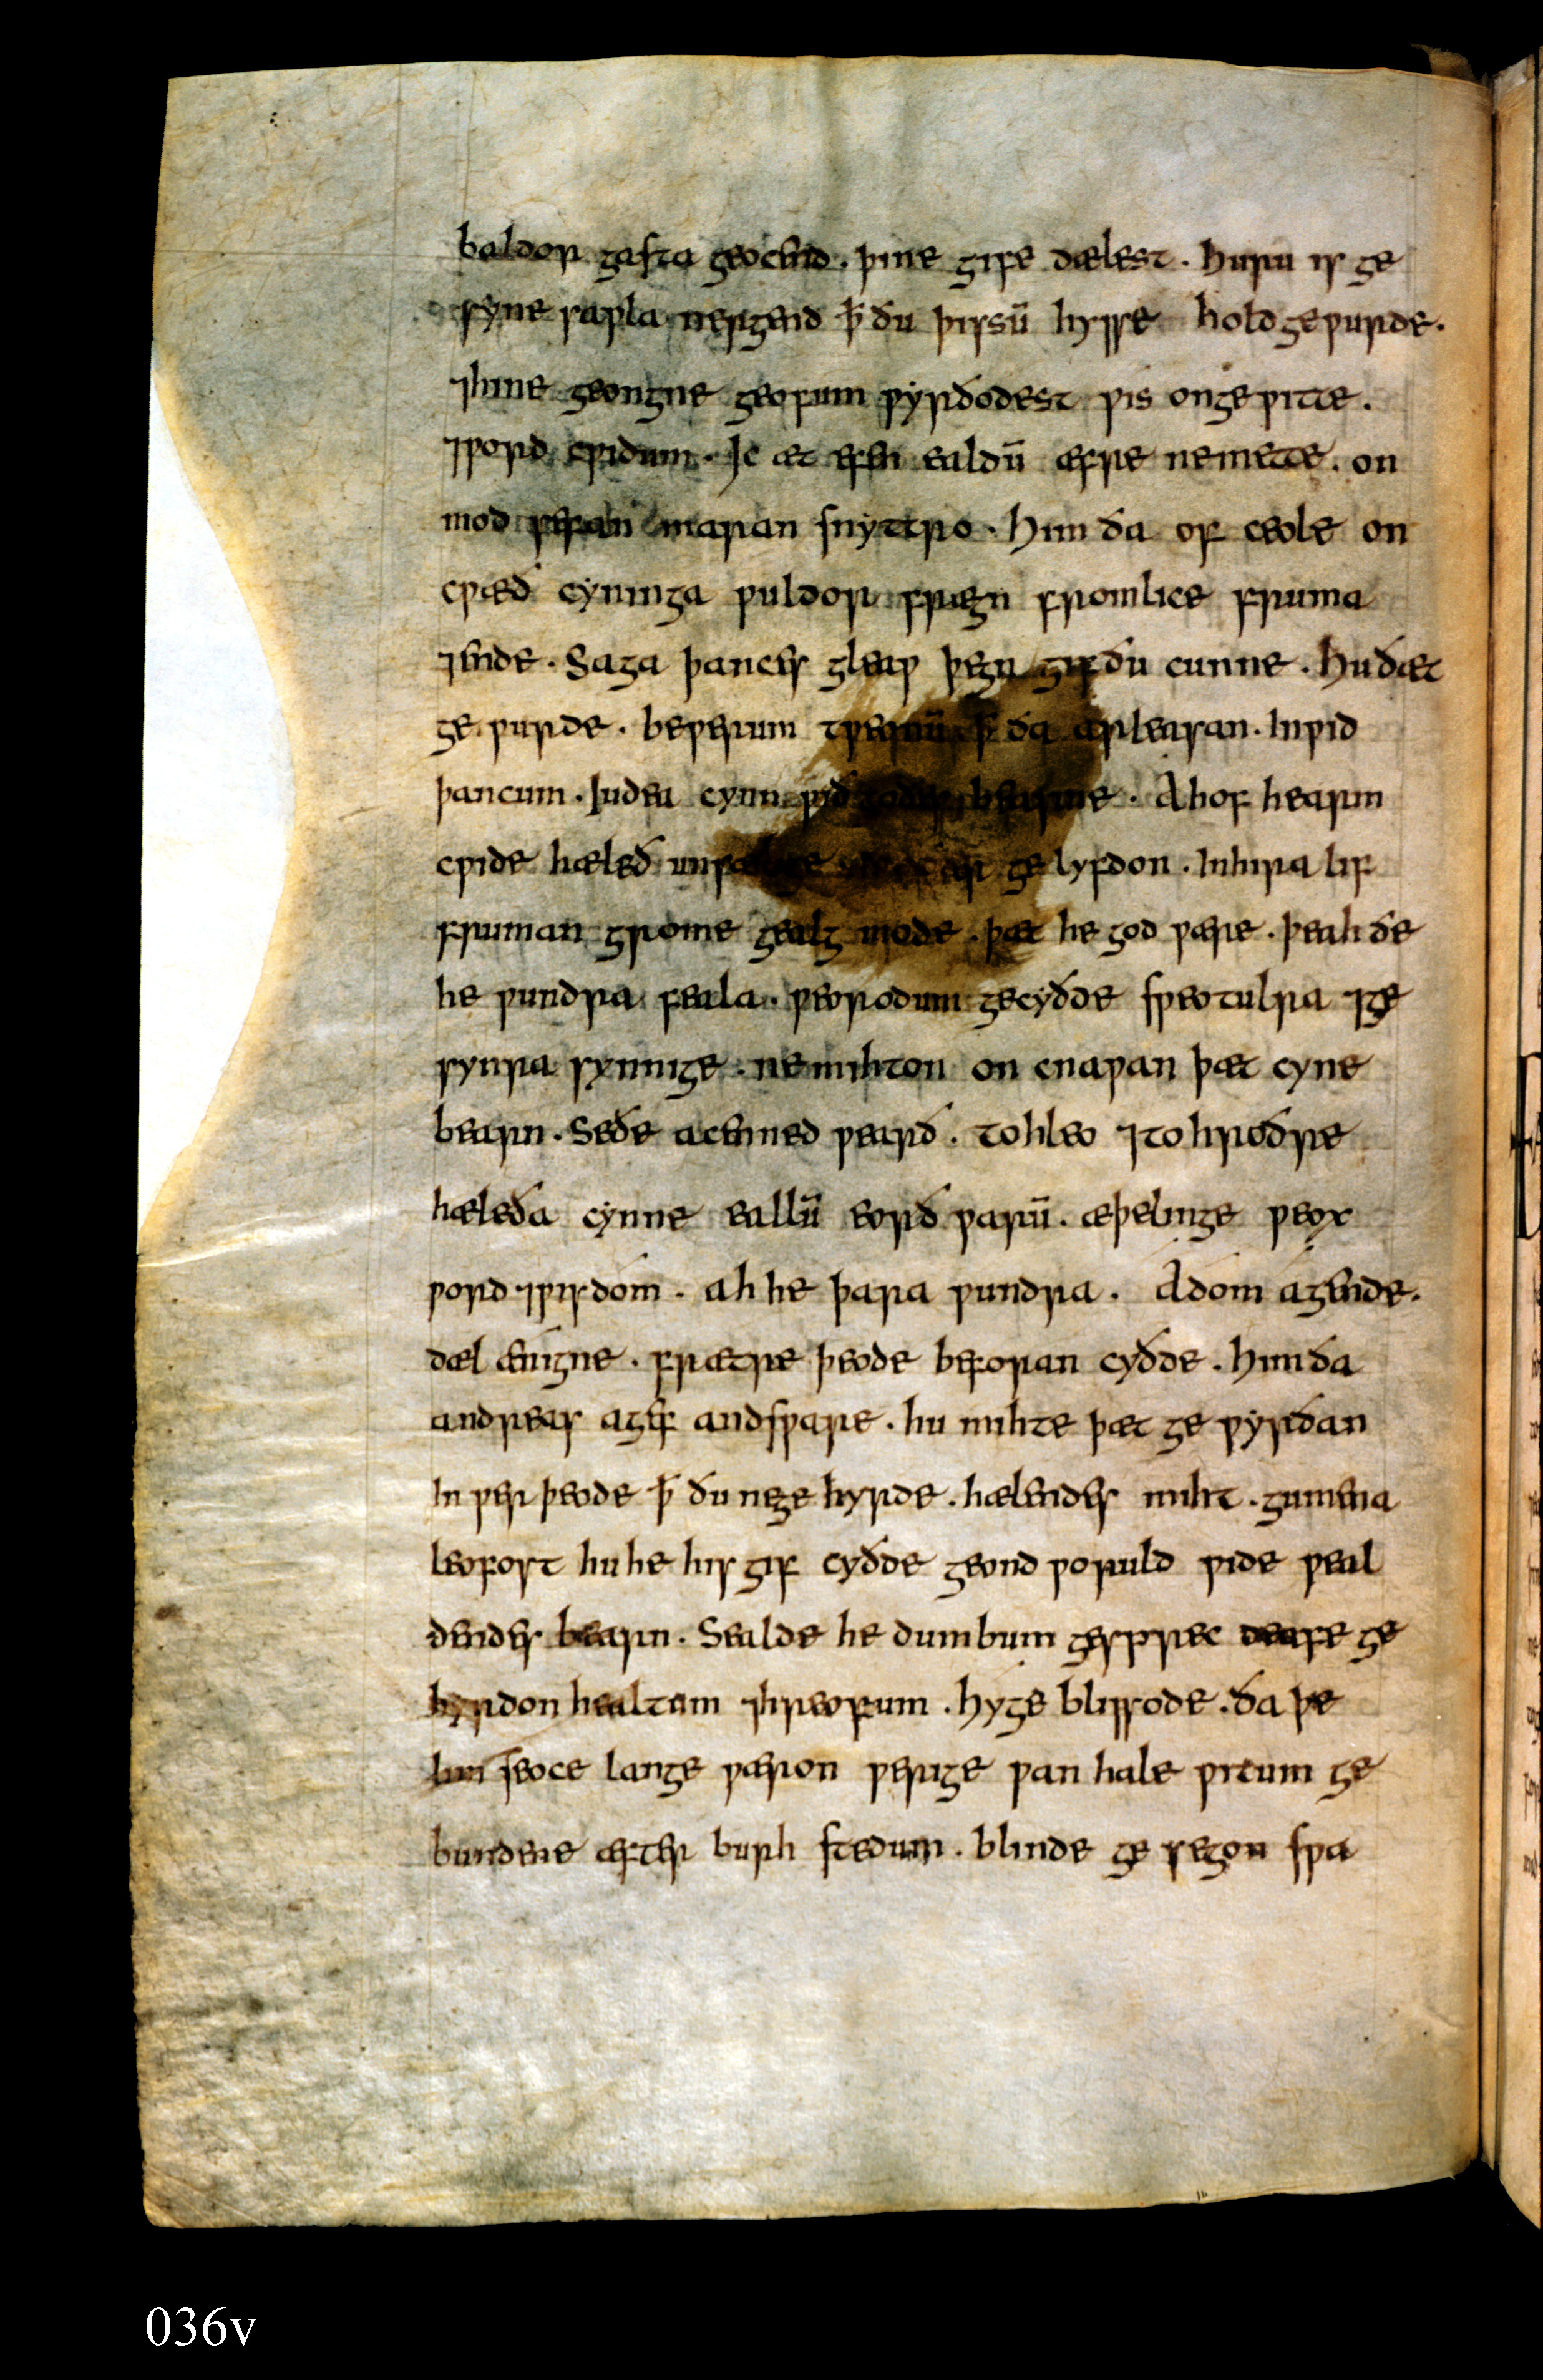 baldor gasta geocend · þine gife dælest · huru is ge
syne sawla nergend ꝥ ðu þissū hysse hold gewurde ·
⁊ hine geongne geofum wyrðodest wis on gewitte ·
⁊ word cwidum · Ic æt efen ealdū æfre ne mette · on
mod sefan maran snyttro · Him ða of ceole on
cwæð cyninga wuldor frægn fromlice fruma
⁊ ende · Saga þances gleaw þegn gif ðu cunne · hu ðæt
ge wurde · be werum tweonū ꝥ ða arleasan · inwid
þancum · Iudea cynn wið godes bearne · Ahof hearm
cwide hæleð unsælige no ðær ge lyfdon · in hira lif
fruman grome gealg mode · þæt he god wære · þeah ðe
he wundra feala · weorodum gecyðde sweotulra ⁊ ge
synra synnige · ne mihton on cnawan þæt cyne
bearn · Se ðe acenned wearð · to hleo ⁊ to hroðre
hæleða cynne eallū eorð warū · æþelinge weox
word ⁊ wisdom · ah he þara wundra · A dom agende ·
dæl ænigne · frætre þeode beforan cyðde · him ða
andreas agef andsware · hu mihte þæt ge wyrðan
in wer þeode ꝥ ðu ne ge hyrde · hælendes miht · gumena
leofost hu he his gif cyðde geond woruld wide weal
dendes bearn · Sealde he dumbum gesprec deafe ge
hyrdon healtum ⁊ hreofum · hyge blissode · ða þe
lim seoce lange wæron werige wan hale witum ge
bundene æfter burh stedum · blinde ge segon swa
036v